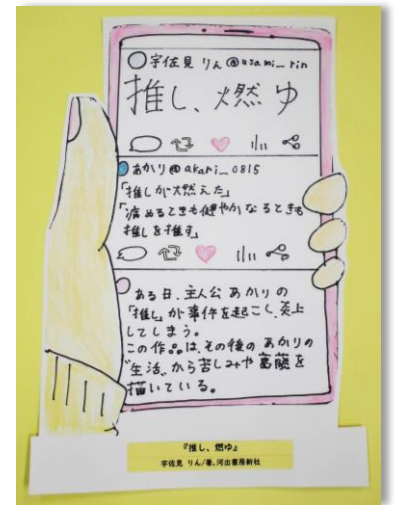 宇佐見りん@usami_rin
推し、燃ゆ
あかり@akari_0815
「推しが燃えた」
「病めるときも健やかなるときも
推しを推す」
ある日、主人公あかりの
「推し」が事件を起こし、炎上
してしまう。
この作品は、その後のあかりの
"生活"から苦しみや葛藤を
描いている。
『推し、燃ゆ』
宇佐見 りん/著、河出書房新社